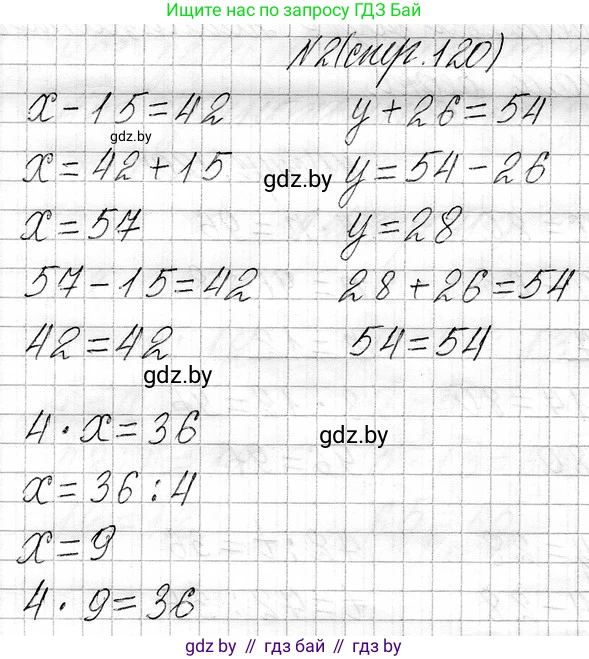 Ищите нас по запросу ГДЗ Бай
N2(стр.120)
x - 15 = 42
gdz.by
x = 42 + 15
x = 57
57 - 15 = 42
42 = 42
gdz.by
y + 26 = 54
gdz.by
y = 54 - 26
y = 28
28 + 26 = 54
54 = 54
4 · x = 36
gdz.by
x = 36 : 4
x = 9
4 · 9 = 36
gdz by // гдз бай // gdz by